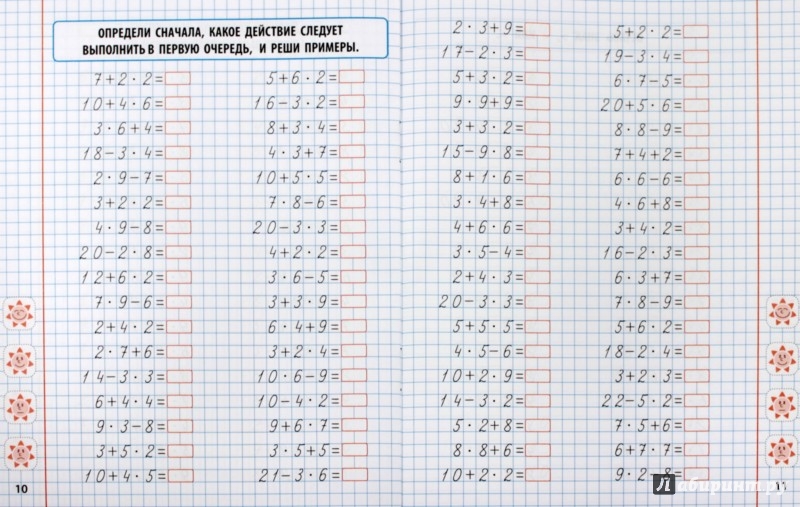 ОПРЕДЕЛИ СНАЧАЛА, КАКОЕ ДЕЙСТВИЕ СЛЕДУЕТ
ВЫПОЛНИТЬ В ПЕРВУЮ ОЧЕРЕДЬ, И РЕШИ ПРИМЕРЫ.
7+2·2=
10+4·6=
3·6+4=
18–3·4=
2·9–7=
3+2·2=
4·9–8=
20–2·8=
12+6·2=
7·9–6=
2+4·2=
2·7+6=
14–3·3=
6+4·4=
9·3–8=
3+5·2=
10+4·5=
5+6·2=
16–3·2=
8+3·4=
4·3+7=
10+5·5=
7·8–6=
20–3·3=
4+2·2=
3·6–5=
3+3·9=
6·4+9=
3+2·4=
10·6–9=
10–4·2=
9+6·7=
3·5+5=
21–3·6=
10
2·3+9=
17–2·3=
5+3·2=
9·9+9=
3+3·2=
15–9·8=
8+1·6=
3·4+8=
4+6·6=
3·5–4=
2+4·3=
20–3·3=
5+5·5=
4·5–6=
10+2·9=
14–3·2=
5·2+8=
8·8+6=
10+2·2=
5+2·2=
19–3·4=
6·7–5=
20+5·6=
8·8–9=
7+4+2=
6·6–6=
4·6+8=
3+4·2=
16–2·3=
6·3+7=
7·8–9=
5+6·2=
18–2·4=
3+2·3=
22–5·2=
7·5+6=
6+7·7=
9·2–8=
11
Лабиринт.ру